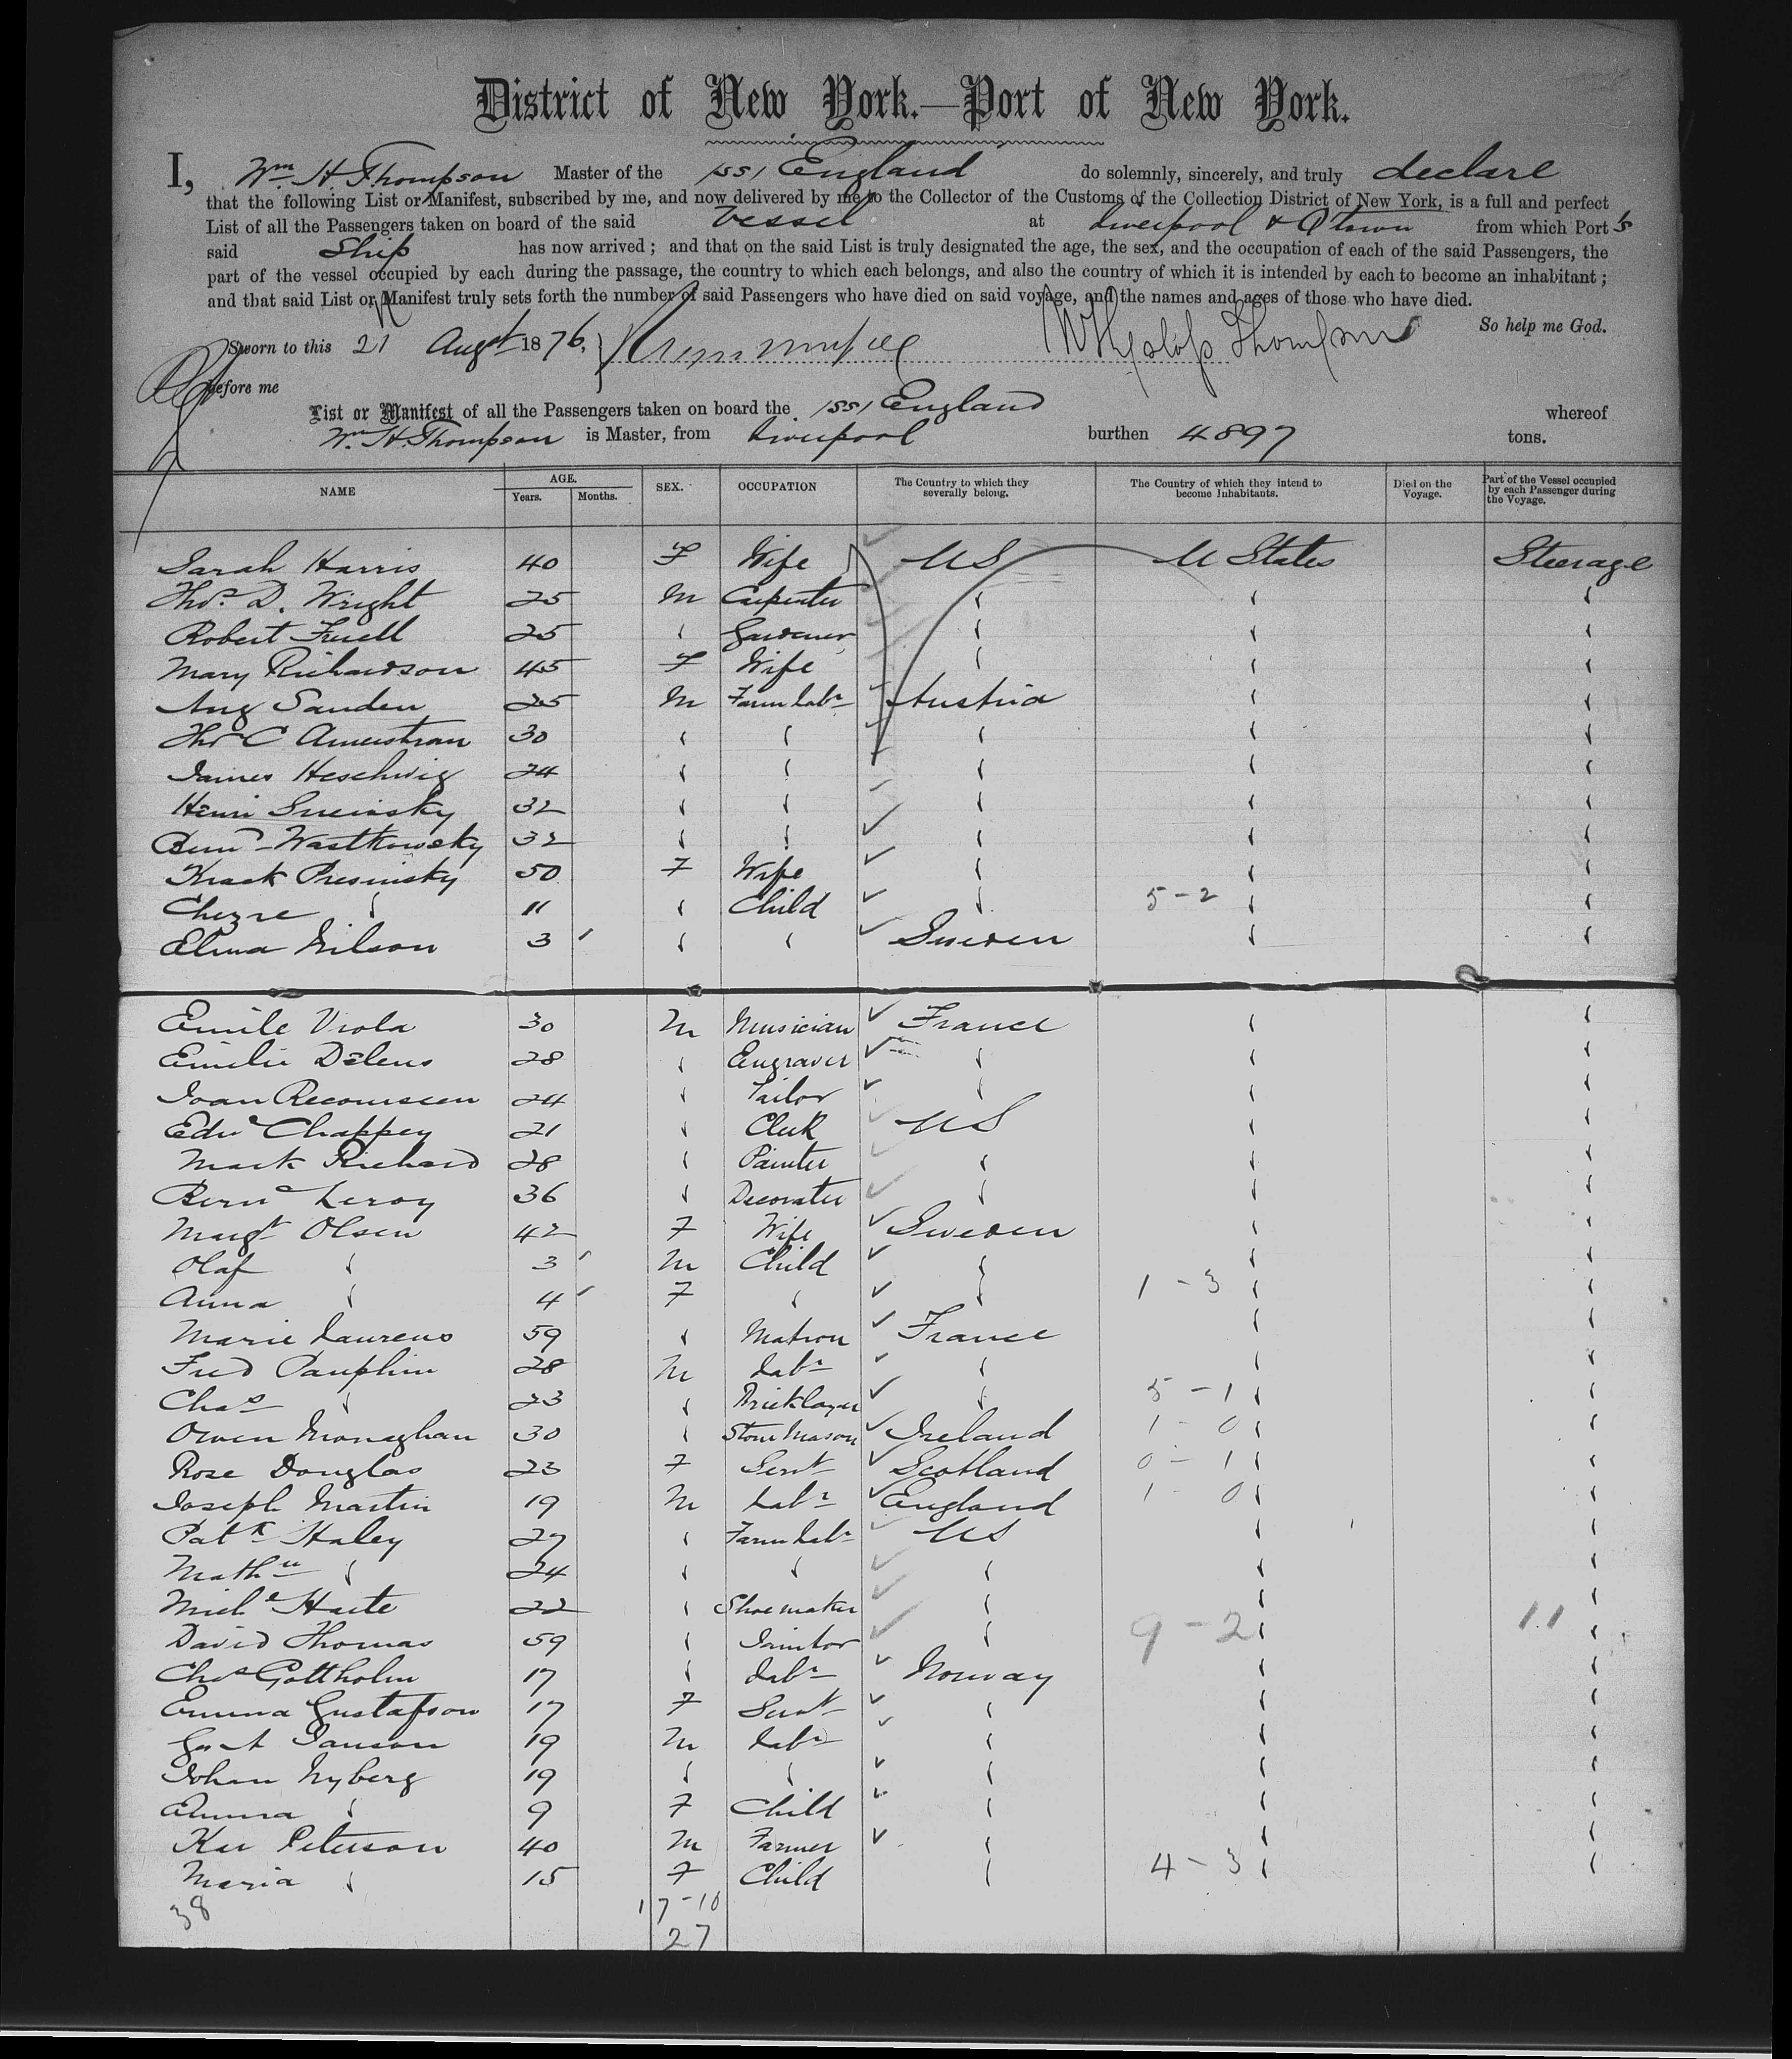 District of New York.—Port of New York.
I, Wm. H. Thompson Master of the SS/ England do solemnly, sincerely, and truly declare
that the following List or Manifest, subscribed by me, and now delivered by me to the Collector of the Customs of the Collection District of New York, is a full and perfect
List of all the Passengers taken on board of the said Vessel at Liverpool & Qtown from which Ports
said Ship has now arrived; and that on the said List is truly designated the age, the sex, and the occupation of each of the said Passengers, the
part of the vessel occupied by each during the passage, the country to which each belongs, and also the country of which it is intended by each to become an inhabitant;
and that said List or Manifest truly sets forth the number of said Passengers who have died on said voyage, and the names and ages of those who have died.
So help me God.
Sworn to this 21 Augst 1876, Thompson
before me
List or Manifest of all the Passengers taken on board the SS/ England whereof
Wm. H. Thompson is Master, from Liverpool burthen 4897 tons.
NAME AGE. Years. Months. SEX. OCCUPATION The Country to which they severally belong. The Country of which they intend to become Inhabitants. Died on the Voyage. Part of the Vessel occupied by each Passenger during the Voyage.
Sarah Harris 40 F Wife US U States Steerage
Thos. D. Wright 25 M Carpenter
Robert 25 Gardener
Mary Richardson 45 F Wife
Aug Sanden 25 M Farm Labr Austria
Thos C 30
James Heschwig 24
Henri 32
32
Presinsky 50 F Wife
11 Child 5-2
Elma Nilson 3 Sweden
Emile Viola 30 M Musician France
Emilie Delens 28 Engraver
24 Tailor
Edwd Chappey 21 Clerk US
Mark Richard 28 Painter
Bernd Leroy 36 Decorater
Margt Olsen 42 F Wife Sweden
Olaf 3 M Child
Anna 4 F 1-3
Marie Laurens 59 Matron France
Fred Pauphin 28 M Labr
Chas 23 Bricklayer 5-1
Owen Monaghan 30 Stone Mason Ireland 1-0
Rose Douglas 23 F Servt Scotland 0-1
Joseph Martin 19 M Labr England 1-0
Patk Haley 27 Farm Labr US
Mathw 24
Michl Harte 22 Shoemaker
David Thomas 59 Janitor 9-2 11
Chas Gottholm 17 Labr Norway
Emma Gustafson 17 F Servt
Gust Janson 19 M Labr
Johan Nyberg 19
Emma 9 F Child
Kar Peterson 40 M Farmer
Maria 15 F Child 4-3
38 17-10
27